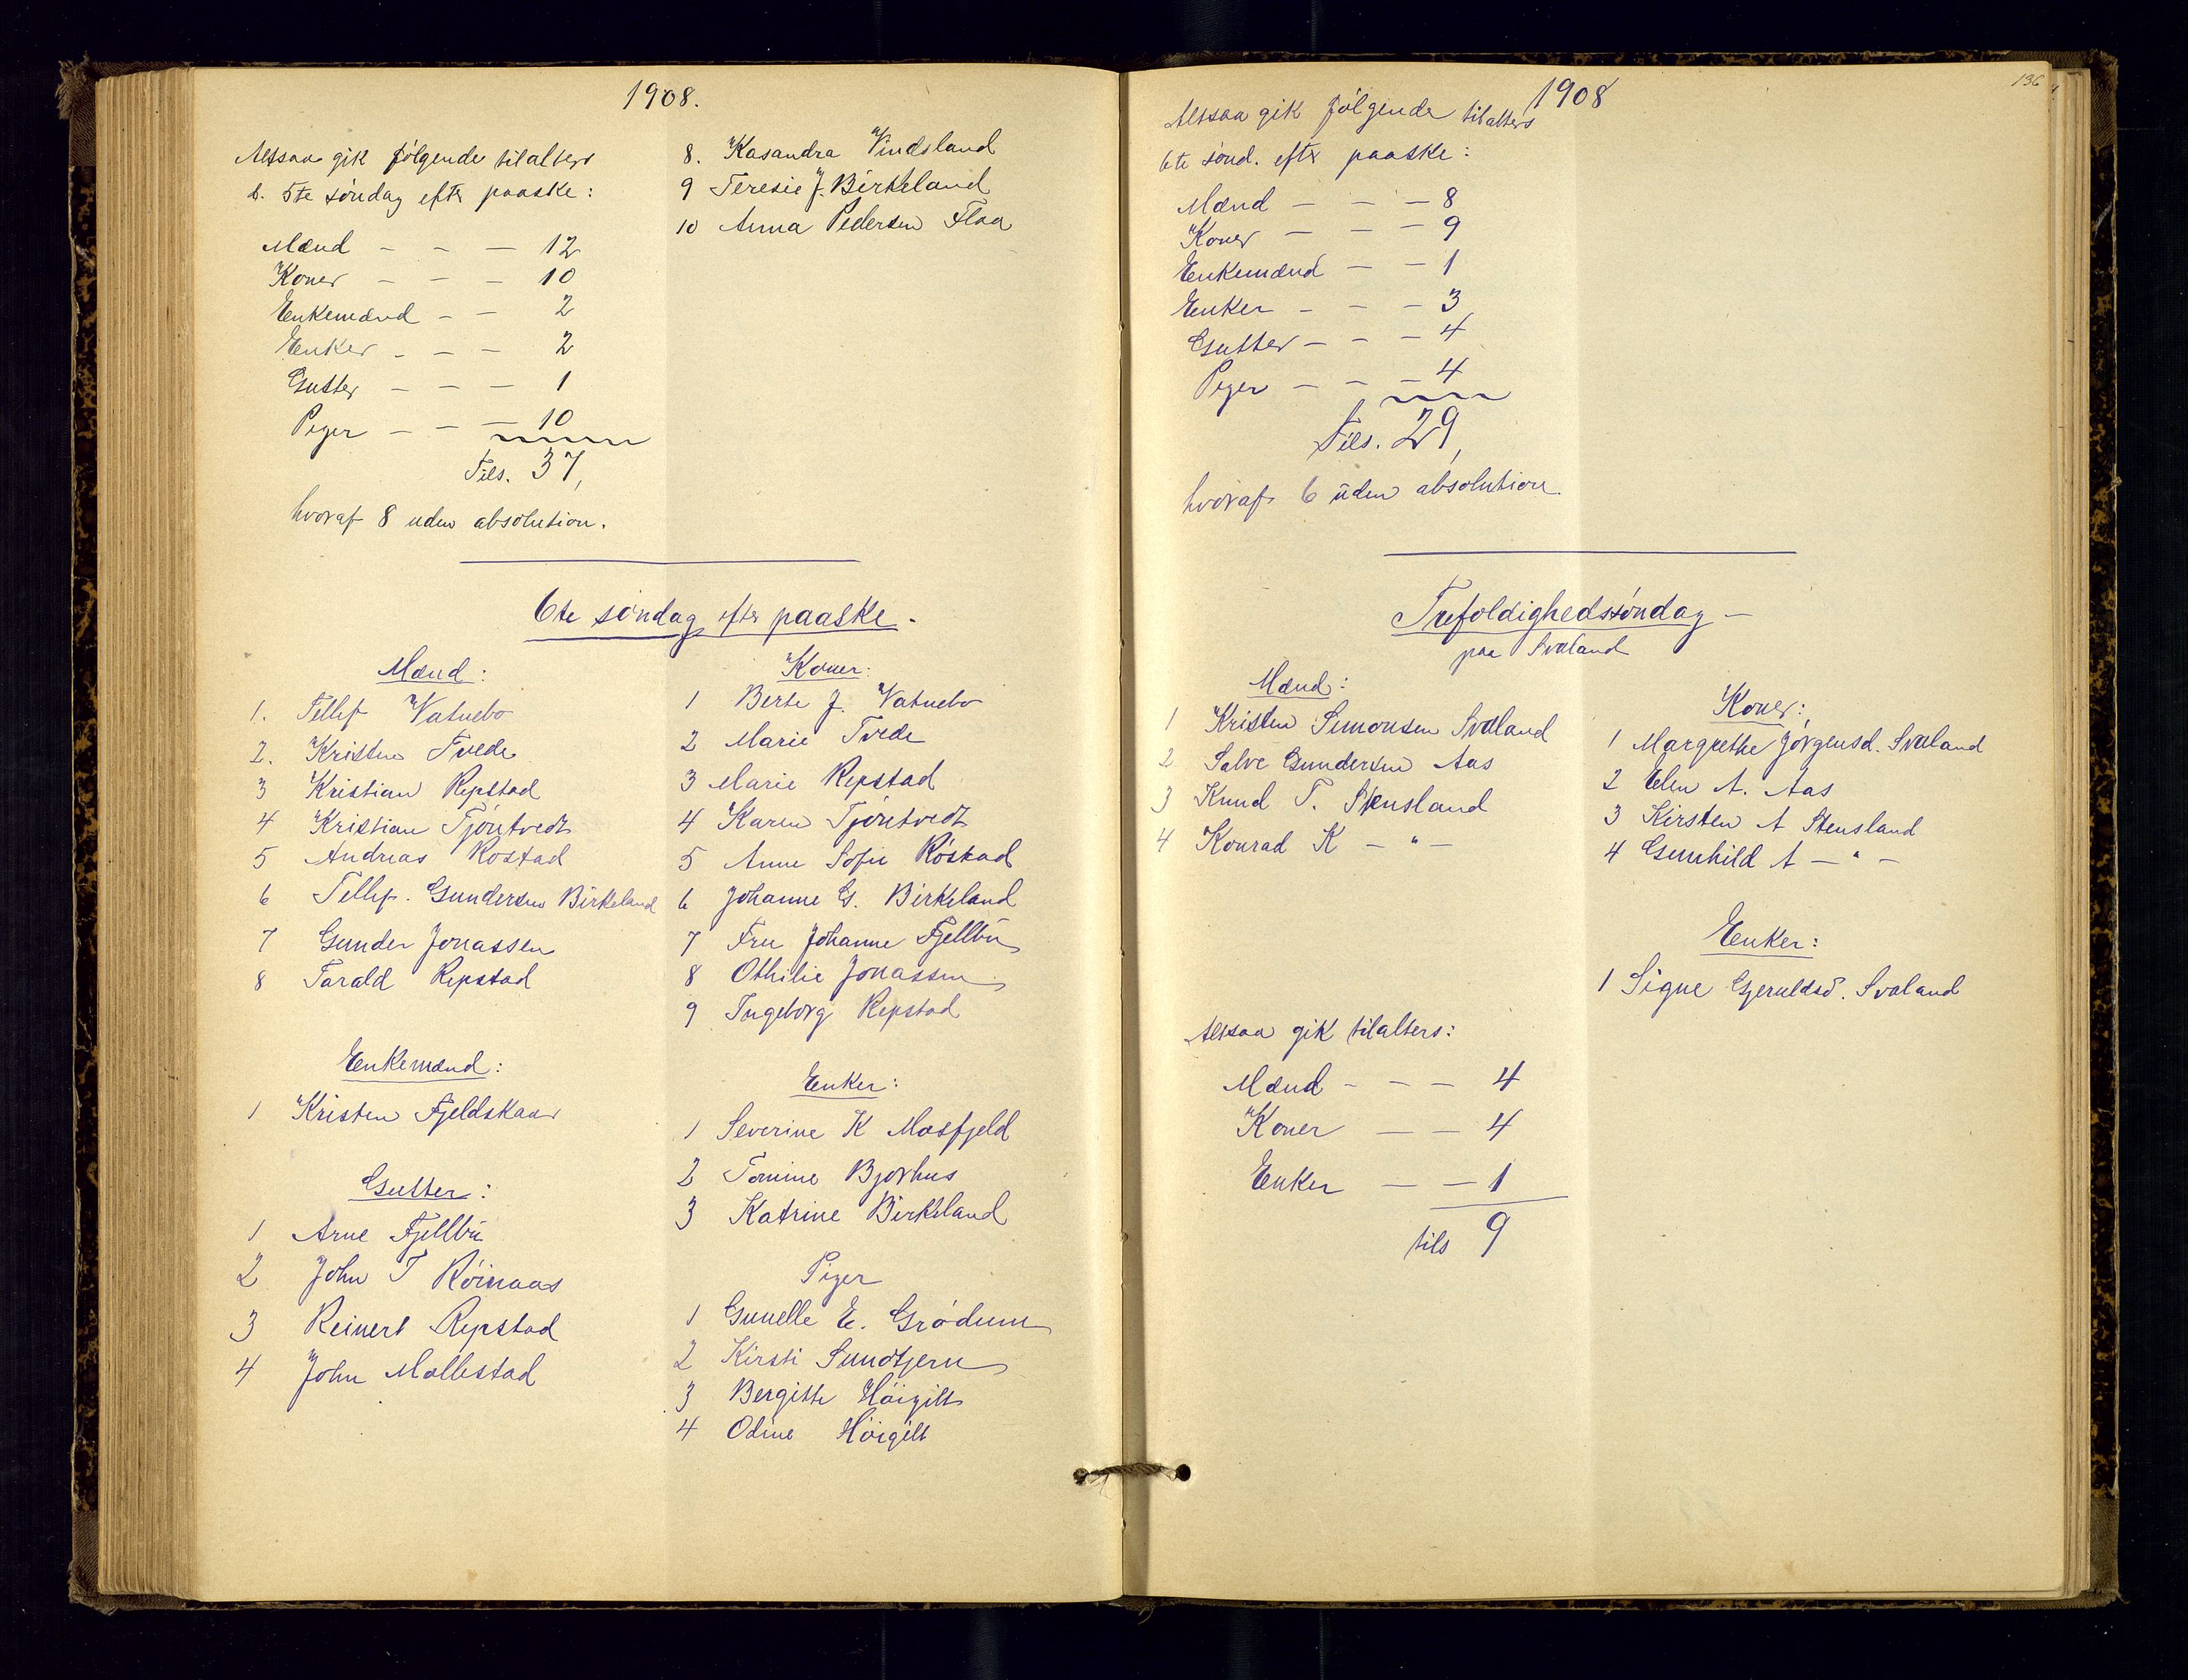 1908.
Altsaa gik følgende tilalters
d. 5te søndag efter paaske:
Mænd - - - 12
Koner - - - 10
Enkemænd - - 2
Enker - - - 2
Gutter - - - 1
Piger - - - 10
Tils. 37,
hvoraf 8 uden absolution.
8. Kasandra Vindsland
9 Teresie J. Birkeland
10 Anna Pedersen Flaa
6te søndag efter paaske.
Mænd:
1. Tellef Vatnebo
2. Kristen Tvede
3 Kristian Repstad
4 Kristian Tjøntvedt
5 Andreas Røstad
6 Tellef Gundersen Birkeland
7 Gunder Jonassen
8 Tarald Repstad
Enkemænd:
1 Kristen Fjeldskaar
Gutter:
1 Arne Fjellbu
2 John T Røinaas
3 Reinert Repstad
4 John Mollestad
Koner:
1 Berte J. Vatnebo
2 Marie Tvede
3 Marie Repstad
4 Karen Tjøntvedt
5 Anne Sofie Røstad
6 Johanne G. Birkeland
7 Fru Johanne Fjellbu
8 Othilie Jonassen
9 Ingeborg Repstad
Enker:
1 Severine K Mosfjeld
2 Tomine Bjorhus
3 Katrine Birkeland
Piger
1 Gunelle E. Grødum
2 Kirsti Sundtjern
3 Bergitte Høigilt
4 Odine Høigilt
136
1908
Altsaa gik følgende tilalters
6te sønd. efter paaske:
Mænd - - - 8
Koner - - - 9
Enkemænd - - 1
Enker - - - 3
Gutter - - - 4
Piger - - - 4
Tils. 29,
hvoraf 6 uden absolution.
Trefoldighedssøndag -
paa Svaland
Mænd:
1 Kristen Simonsen Svaland
2 Salve Gundersen Aas
3 Knud T. Stensland
4 Konrad K - " -
Koner:
1 Margrethe Jørgensd. Svaland
2 Elen A. Aas
3 Kirsten A Stensland
4 Gunhild A - " -
Enker:
1 Signe Gjeruldsd. Svaland
Altsaa gik tilalters:
Mænd - - - 4
Koner - - 4
Enker - - 1
tils 9